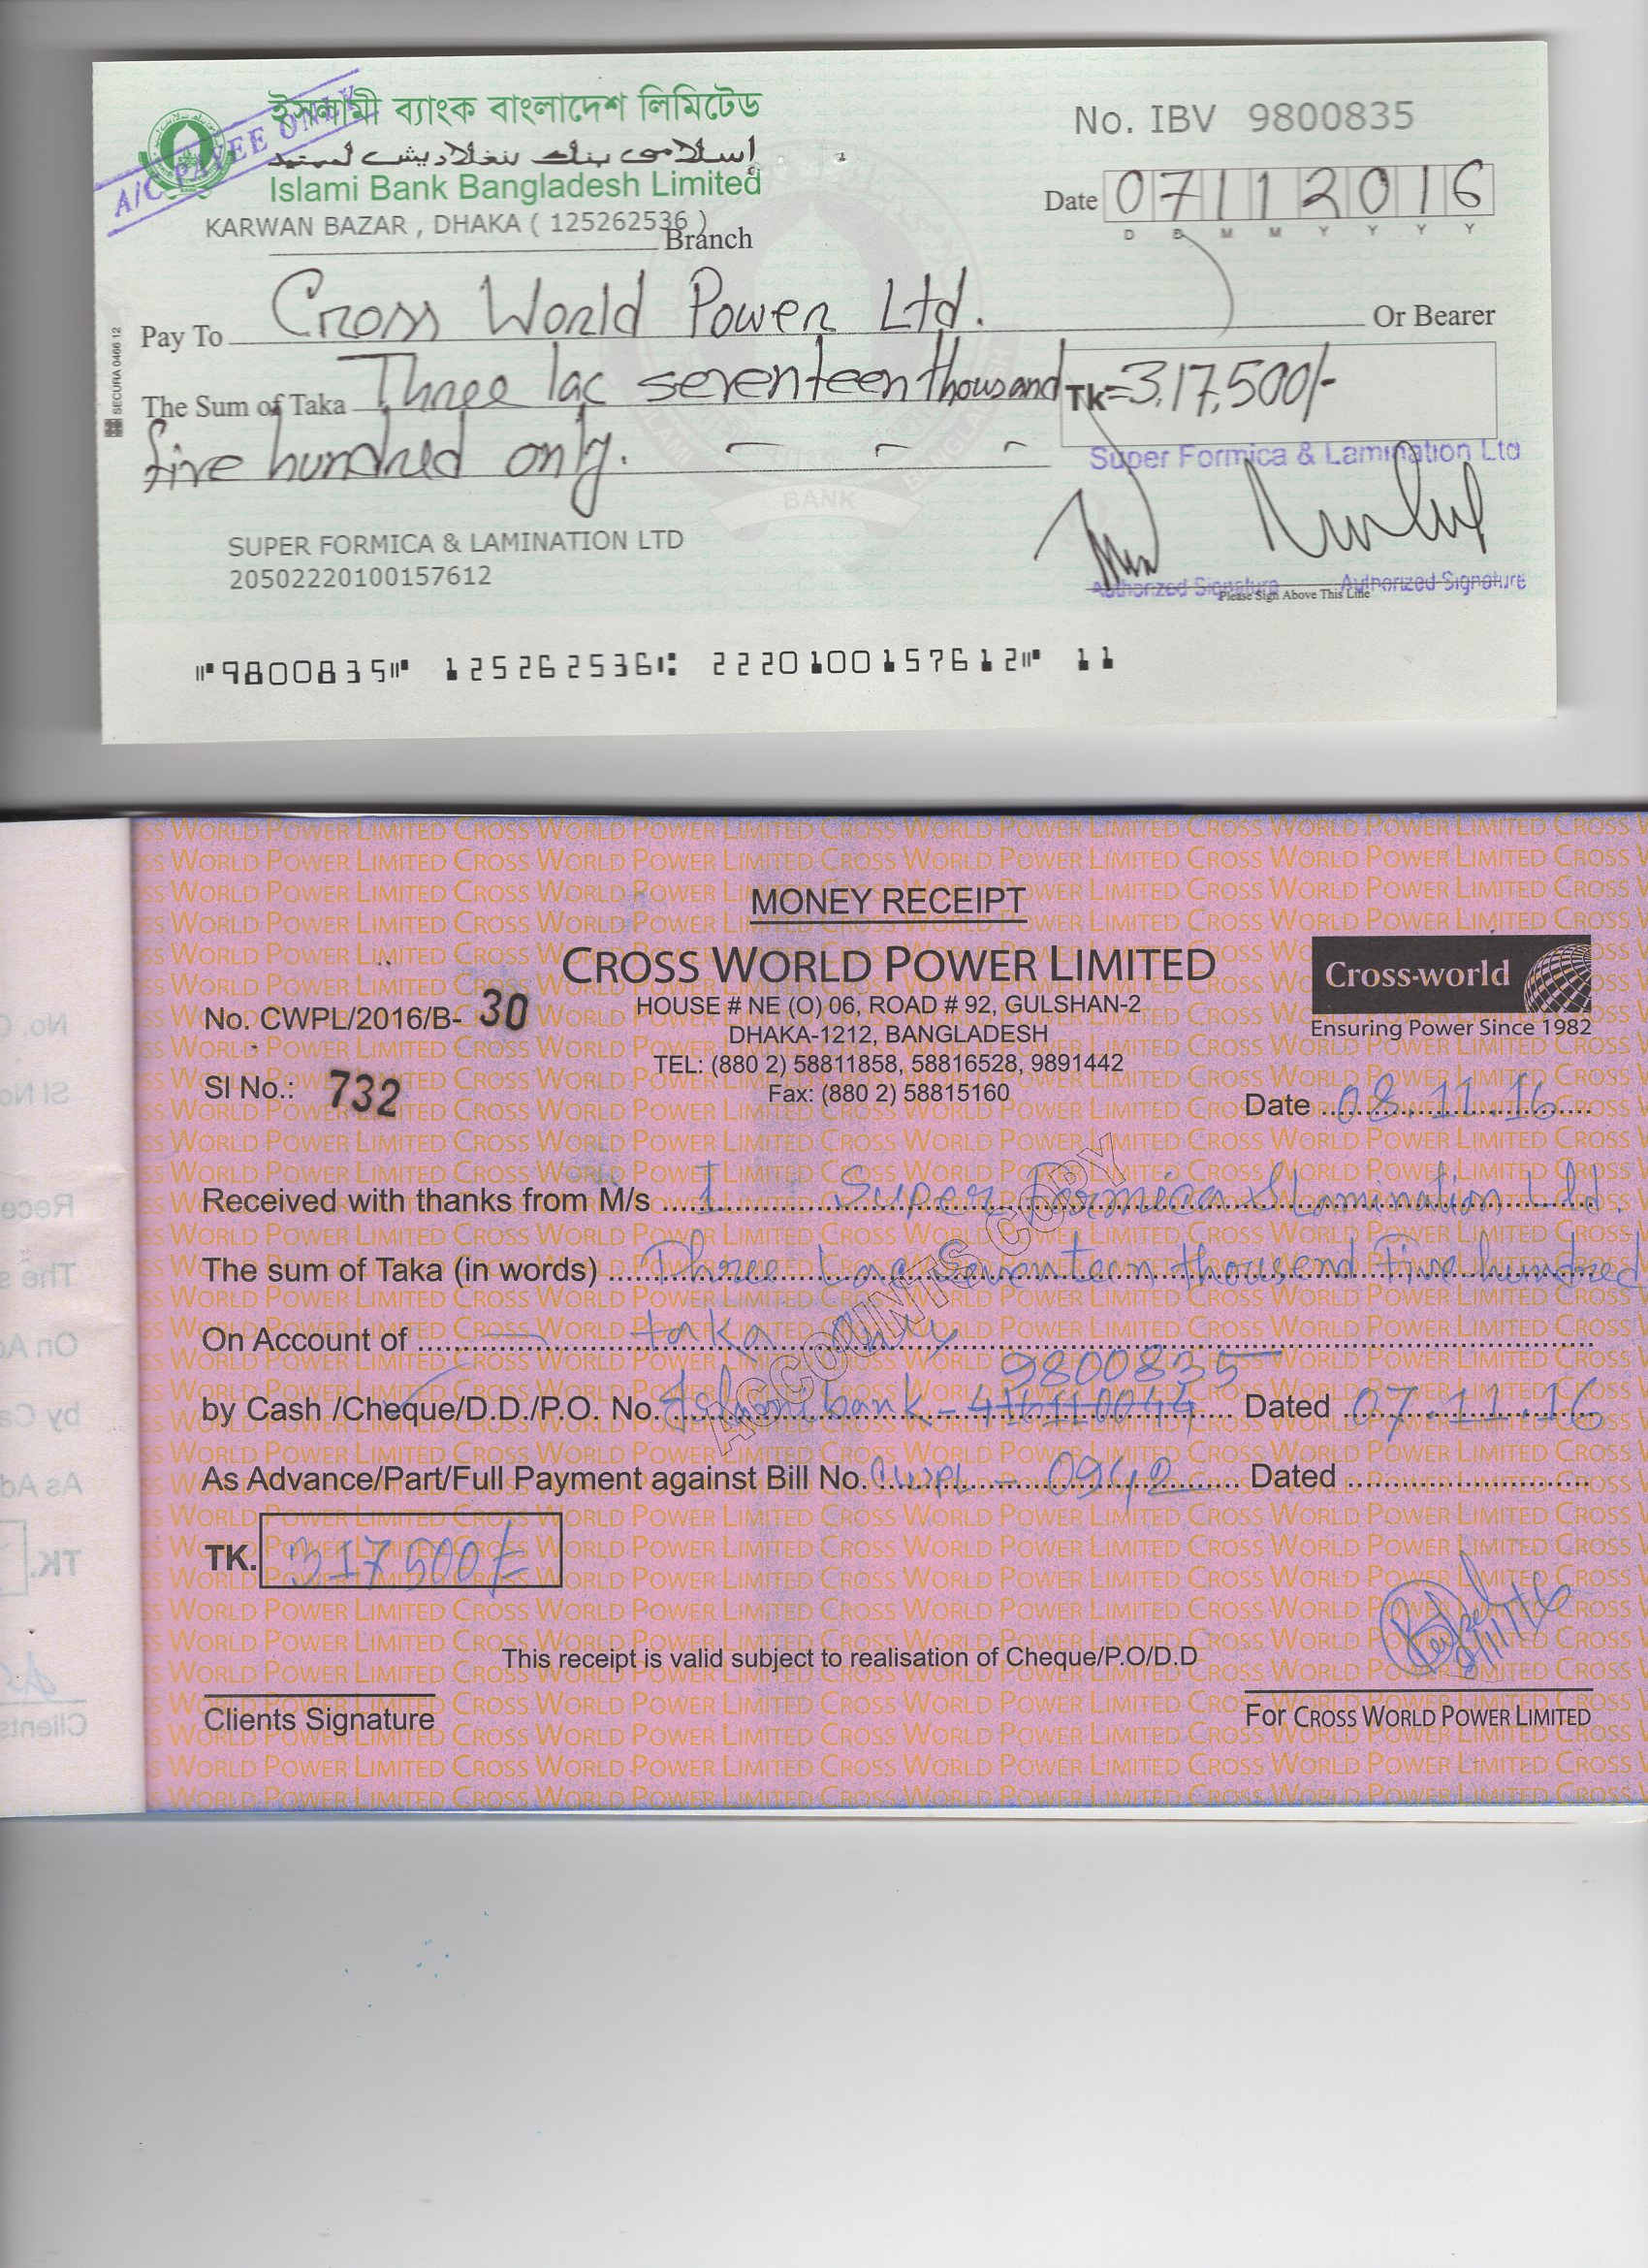 A/C PAYEE ONLY
ইসলামী ব্যাংক বাংলাদেশ লিমিটেড
اسلامی بنك بنغلاديش لميتيد
Islami Bank Bangladesh Limited
KARWAN BAZAR , DHAKA ( 125262536 )
Branch
No. IBV 9800835
Date 07112016
D D M M Y Y Y Y
Pay To Cross World Power Ltd. Or Bearer
The Sum of Taka Three lac seventeen thousand TK=3,17,500/-
five hundred only.
SECURA 0466 12
BANK
Super Formica & Lamination Ltd
SUPER FORMICA & LAMINATION LTD
20502220100157612
Authorized Signature Authorized Signature
Please Sign Above This Line
⑈9800835⑈ 125262536⑆ 2220100157612⑈ 11
MONEY RECEIPT
CROSS WORLD POWER LIMITED
HOUSE # NE (O) 06, ROAD # 92, GULSHAN-2
DHAKA-1212, BANGLADESH
TEL: (880 2) 58811858, 58816528, 9891442
Fax: (880 2) 58815160
Cross-world
Ensuring Power Since 1982
No. CWPL/2016/B- 30
SI No.: 732
Date 08.11.16
Received with thanks from M/s Super Formica & Lamination Ltd.
The sum of Taka (in words) Three Lac seventeen thousend Five hundred
On Account of taka only
9800835
by Cash /Cheque/D.D./P.O. No. Islami bank - Dated 07.11.16
As Advance/Part/Full Payment against Bill No. CWPL - 0942 Dated
TK. 317500/=
ACCOUNTS COPY
8/11/16
This receipt is valid subject to realisation of Cheque/P.O/D.D
Clients Signature
For CROSS WORLD POWER LIMITED